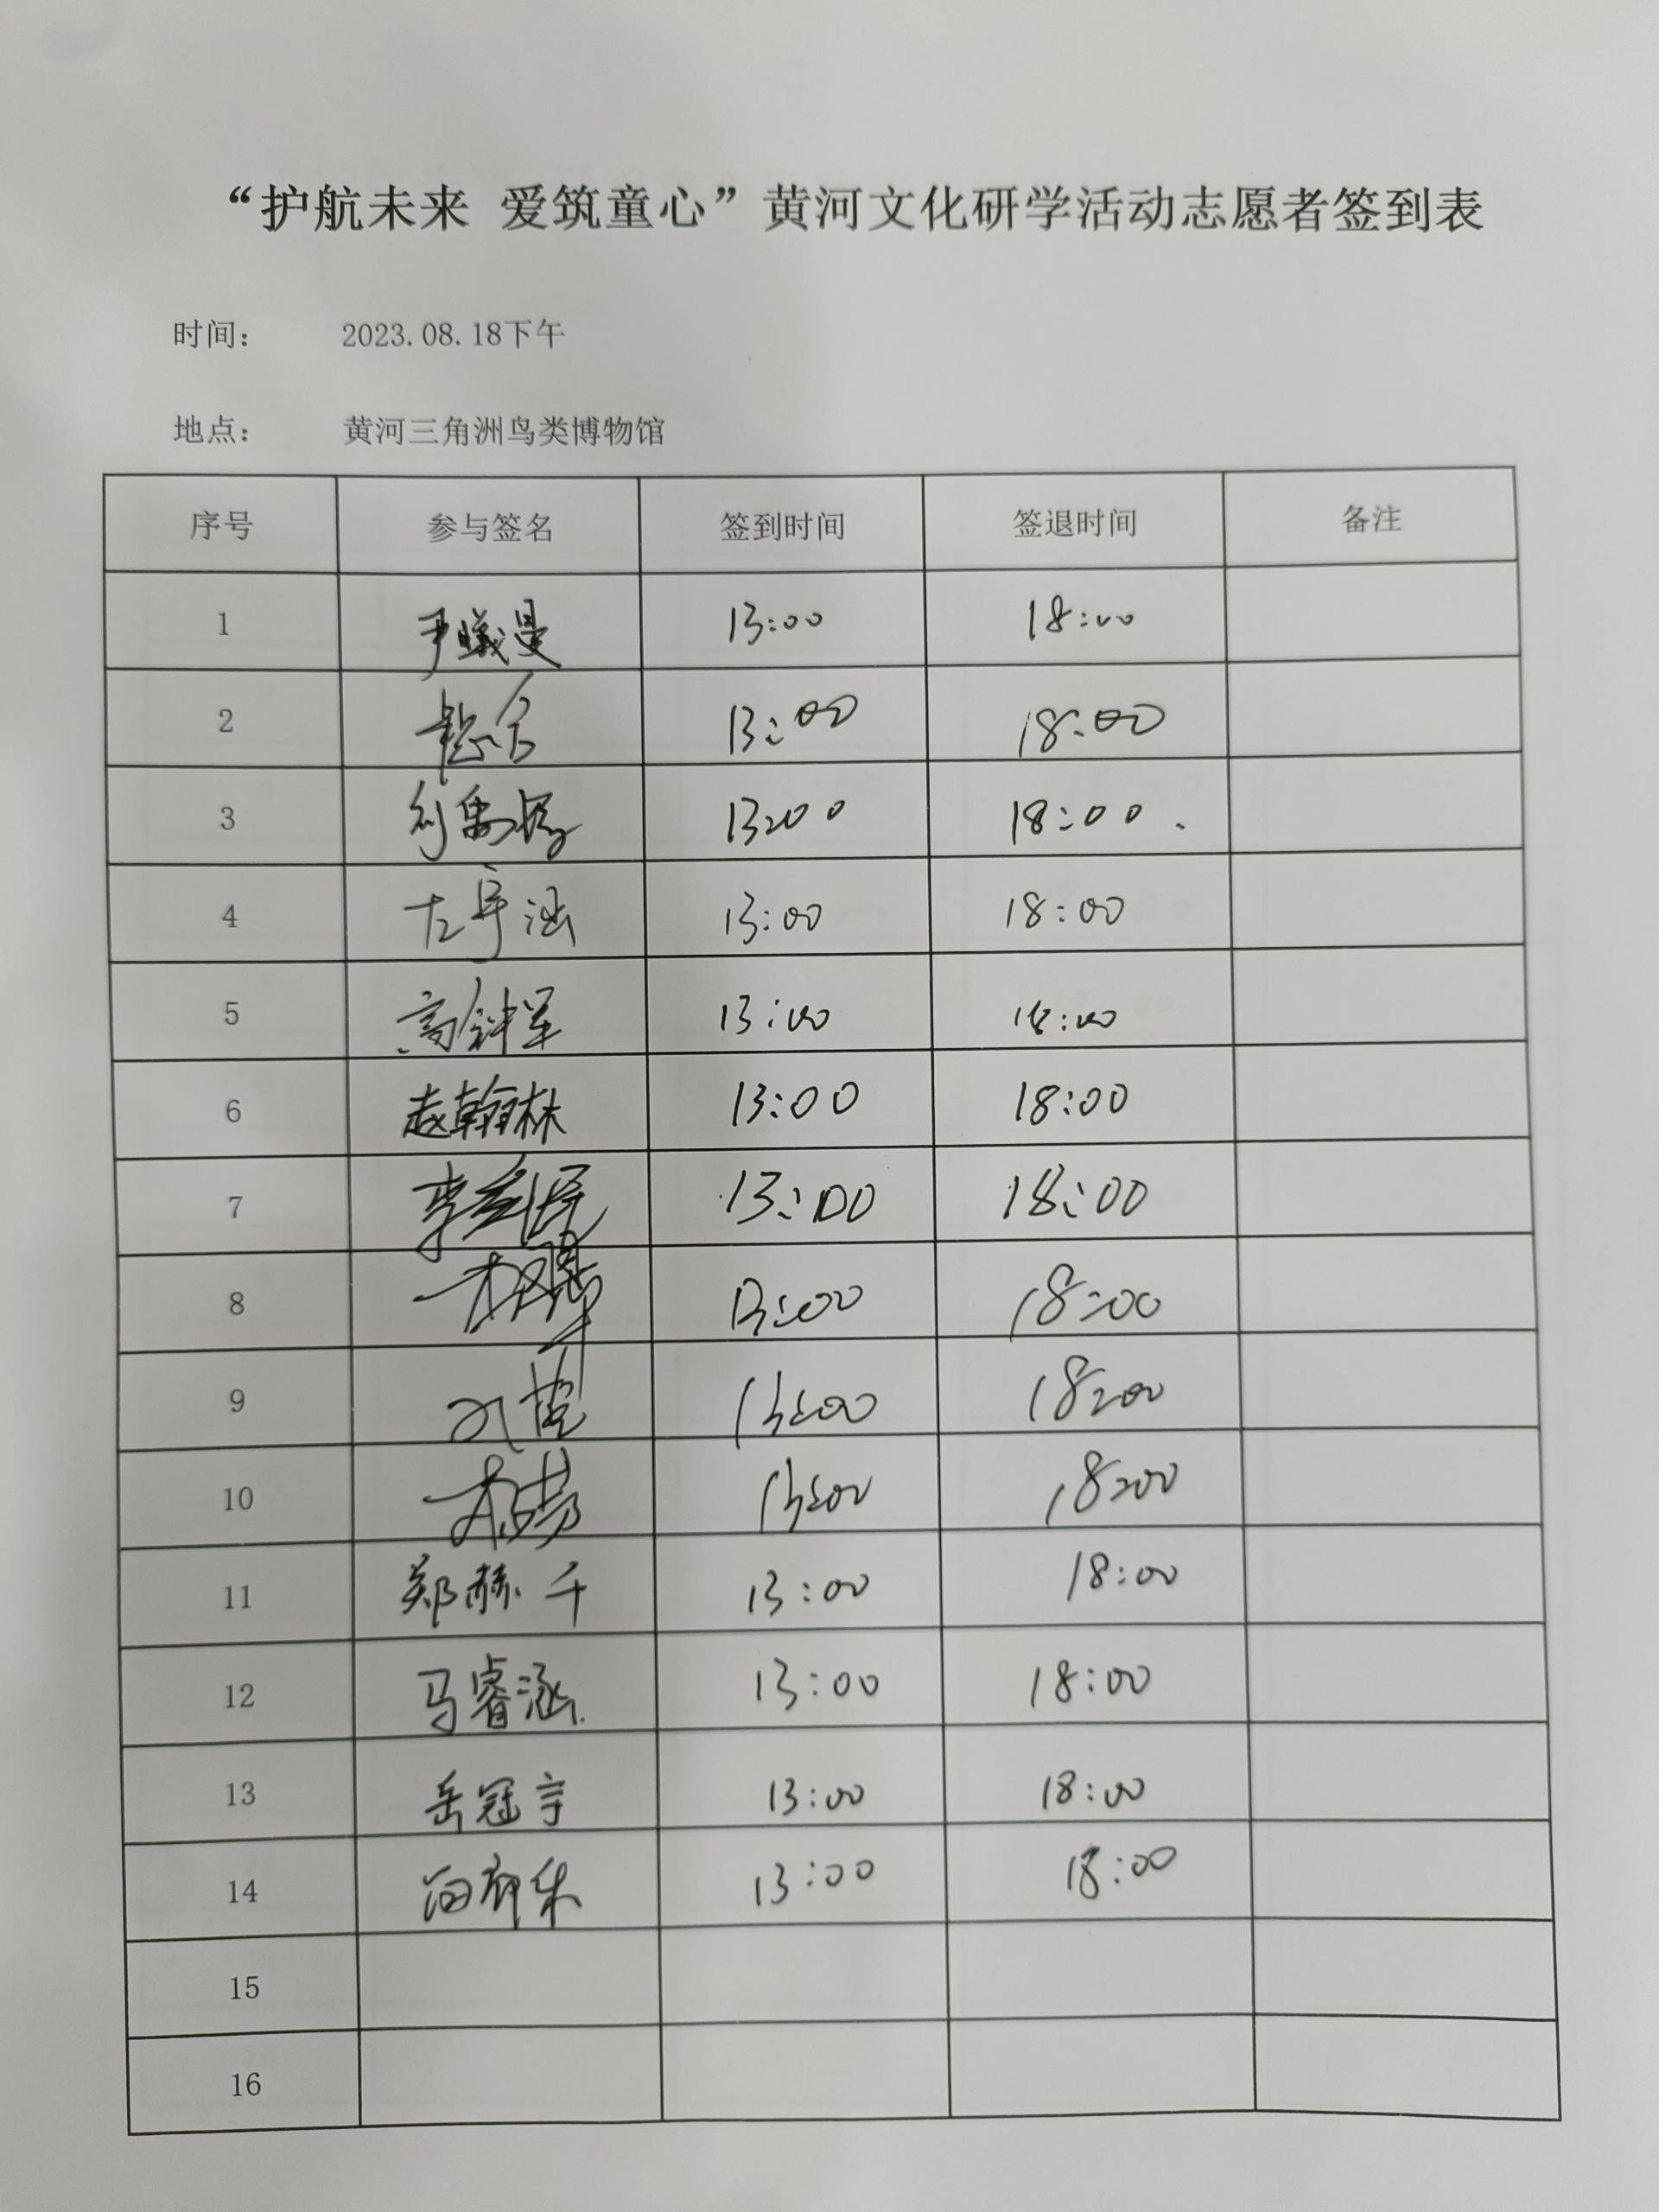 “护航未来 爱筑童心”黄河文化研学活动志愿者签到表
时间： 2023.08.18下午
地点： 黄河三角洲鸟类博物馆
序号 参与签名 签到时间 签退时间 备注
1 尹曦曼 13:00 18:00
2 13:00 18:00
3 13:00 18:00
4 左宇涵 13:00 18:00
5 高钟军 13:00 18:00
6 赵翰林 13:00 18:00
7 13:00 18:00
8 13:00 18:00
9 13:00 18:00
10 13:00 18:00
11 郑赫千 13:00 18:00
12 马睿涵 13:00 18:00
13 岳冠宇 13:00 18:00
14 13:00 18:00
15
16